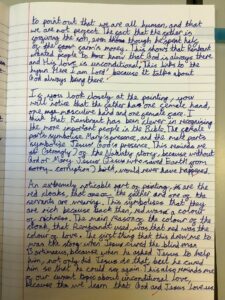 to point out that we are all human, and that
we are not perfect. The fact that the father is
forgiving the son, even though he spent half
of the farm earn's money. This shows that Rembrandt
wanted people to know that God is always there
and His love is unconditional. This links to the
hymn 'Here I am Lord' because it talks about
God always being there.
If you look closely at the painting, you
will notice that the father has one gentle hand,
one masculine hand and one female hand. I
think that Rembrandt has been clever in recognising
the more important people in the Bible. The female
parts symbolises Mary's presence, and the male parts
symbolise Jesus' God's presence. This reminds me
of the Nativity story, because without
God or Mary, Jesus (who saved Earth from
corruption) would never have happened.
An extremely noticable part of painting, is are the
red cloaks, that one, the father and one of the
servants are wearing. This symbolises that they
are rich because back then, red was a colour
of richness. The main reason for the colour of the
cloak, that Rembrandt used was that red was the
colour of love. The first thing that this links me to
was the story when Jesus cured the blind man
Bartimaeus, because when he asked Jesus to help
him, not only did Jesus do that but he cured
him so that he could see again. This also reminds me
of our current topic about unconditional love,
because we learn that God and Jesus love us